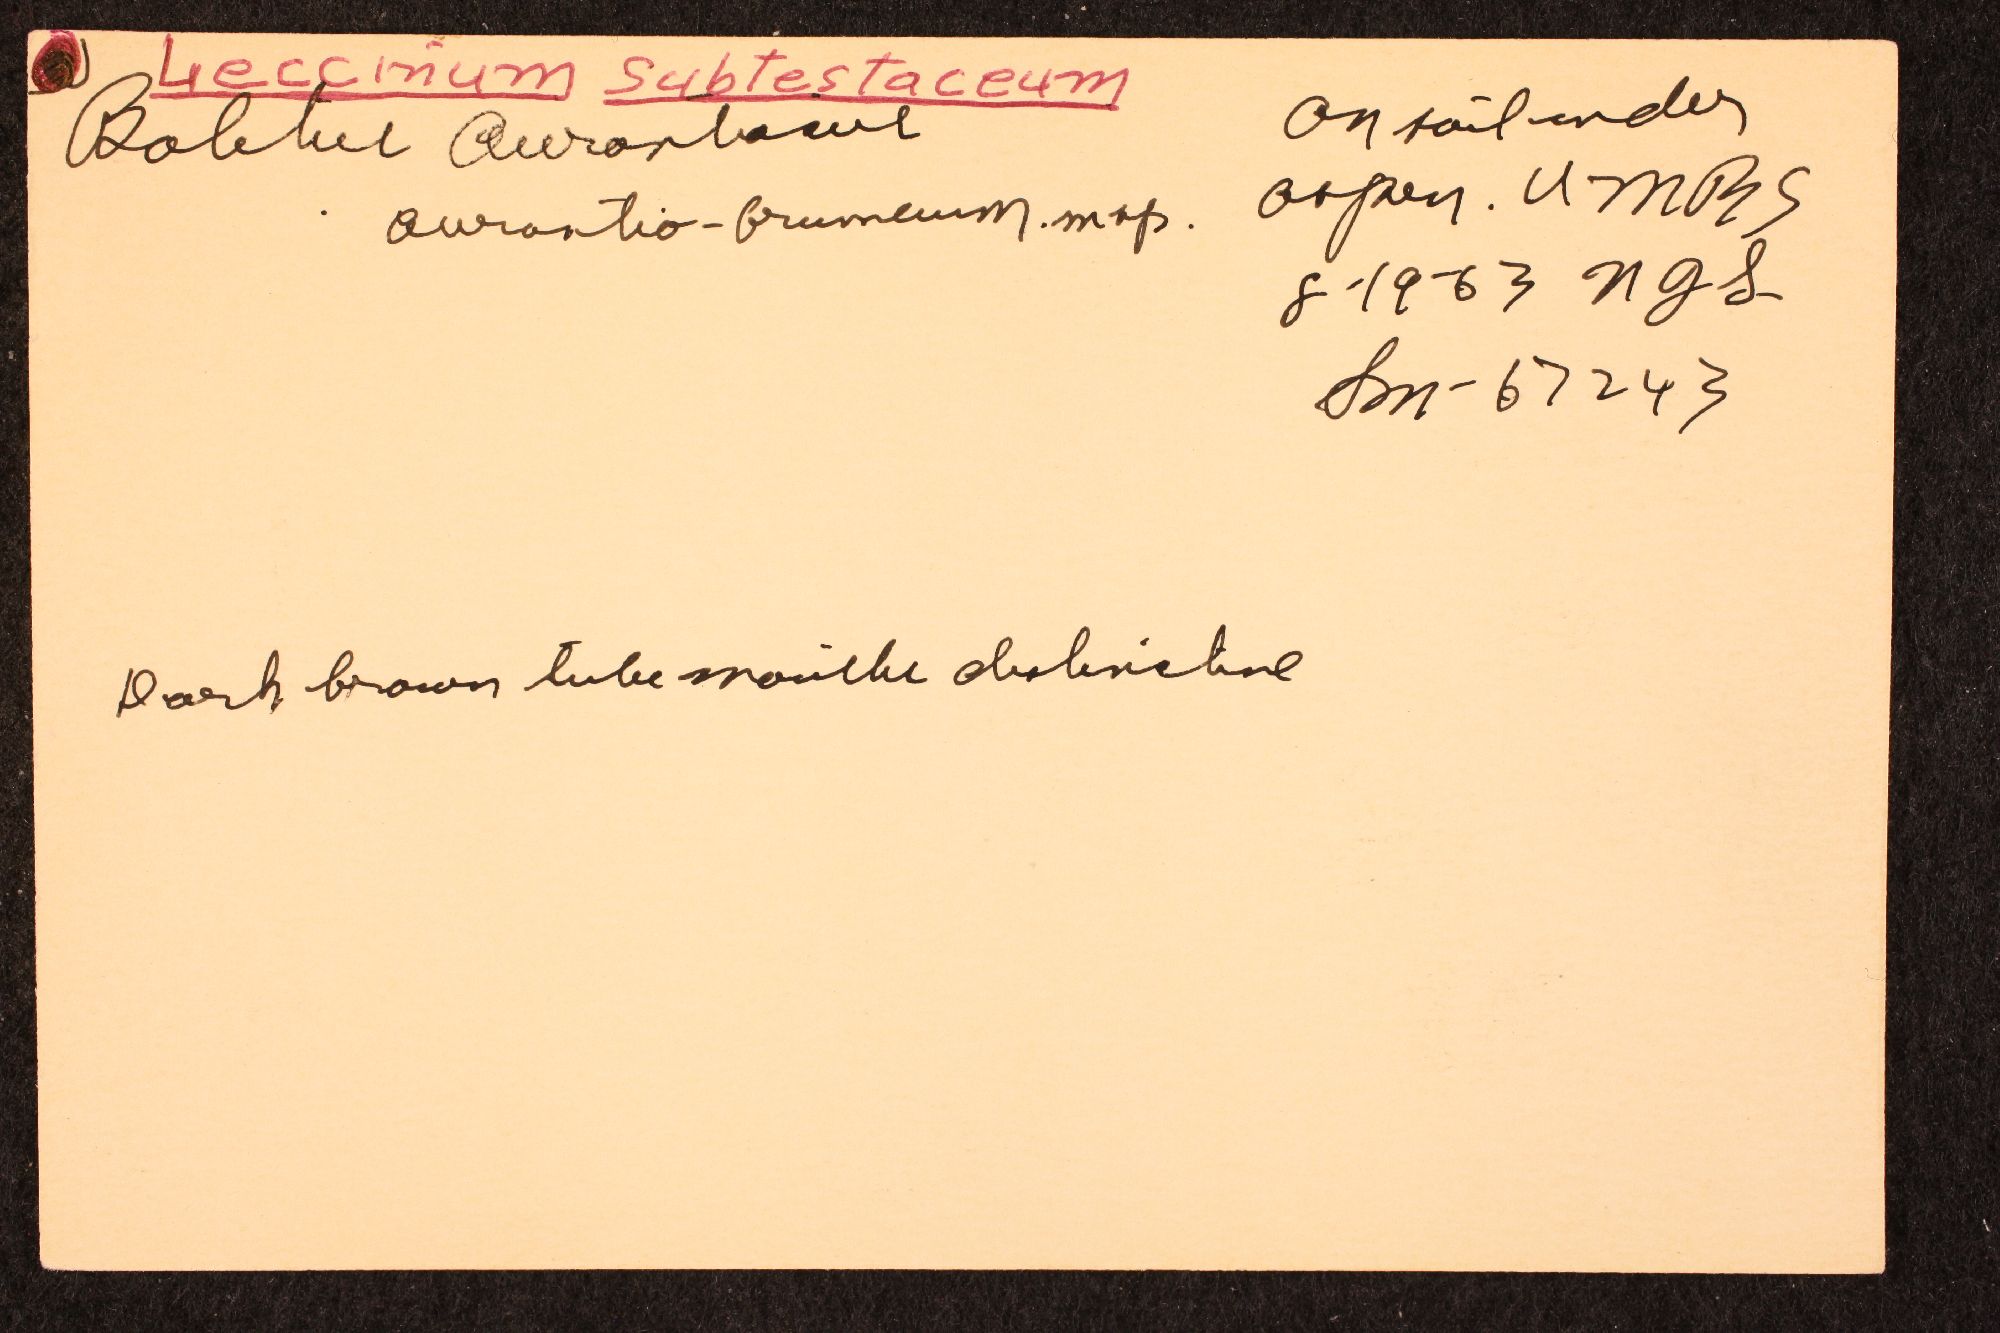 Leccinum subtestaceum
Boletus aurantiacus
aurantio-brunneum. msp.
On soil under
aspen. UMBS
8-19-63 NJS
Sm-67243
Dark brown tube mouths distinctive